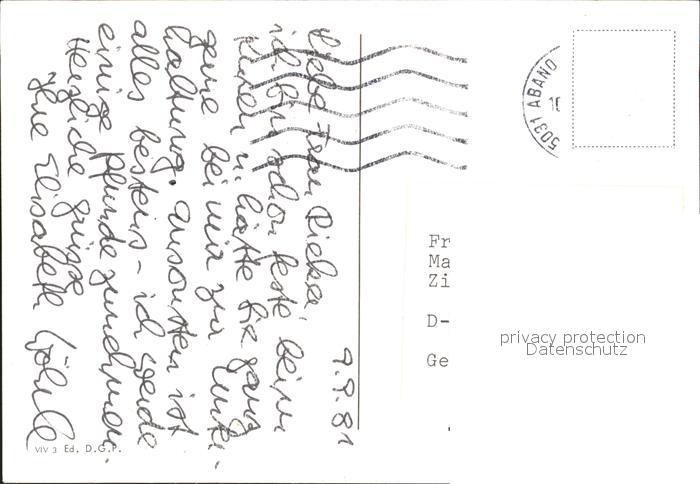 9.9.81
Liebe Frau Rieker,
ich bin schon feste beim
Kuren u. hätte Sie ganz
gerne bei mir zur Unter-
haltung. Ansonsten ist
alles bestens - ich werde
einige Pfunde zunehmen.
Herzliche Grüsse
Ihre Elisabeth
VIV 3 Ed. D.G.P.
5031 ABANO
Fr
Ma
Zi
D-
Ge
privacy protection
Datenschutz